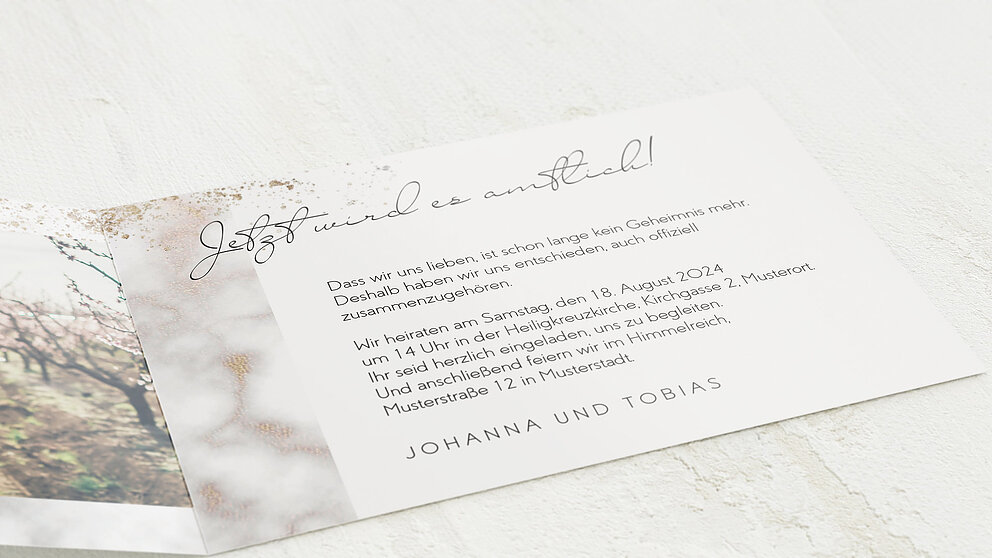 Jetzt wird es amtlich!
Dass wir uns lieben, ist schon lange kein Geheimnis mehr.
Deshalb haben wir uns entschieden, auch offiziell
zusammenzugehören.
Wir heiraten am Samstag, den 18. August 2024
um 14 Uhr in der Heiligkreuzkirche, Kirchgasse 2, Musterort.
Ihr seid herzlich eingeladen, uns zu begleiten.
Und anschließend feiern wir im Himmelreich,
Musterstraße 12 in Musterstadt.
JOHANNA UND TOBIAS